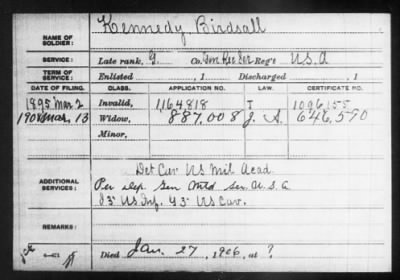 NAME OF SOLDIER: Kennedy Birdsall
SERVICE: Late rank, G. Co. Gen Rec Ser Reg't U.S.A
TERM OF SERVICE: Enlisted , 1 Discharged , 1
DATE OF FILING. CLASS. APPLICATION NO. LAW. CERTIFICATE NO.
1895 Mar 2 Invalid, 1,164818 I 1096,155
190 Mar. 13 Widow, 887.008 J. A. 646,590
Minor,
ADDITIONAL SERVICES: Det Cav US Mil Acad.
Per dep Gen Mtd Ser. U.S.A
US Inf. 43" US Cav.
REMARKS:
Died Jan. 27, 1906, at ?